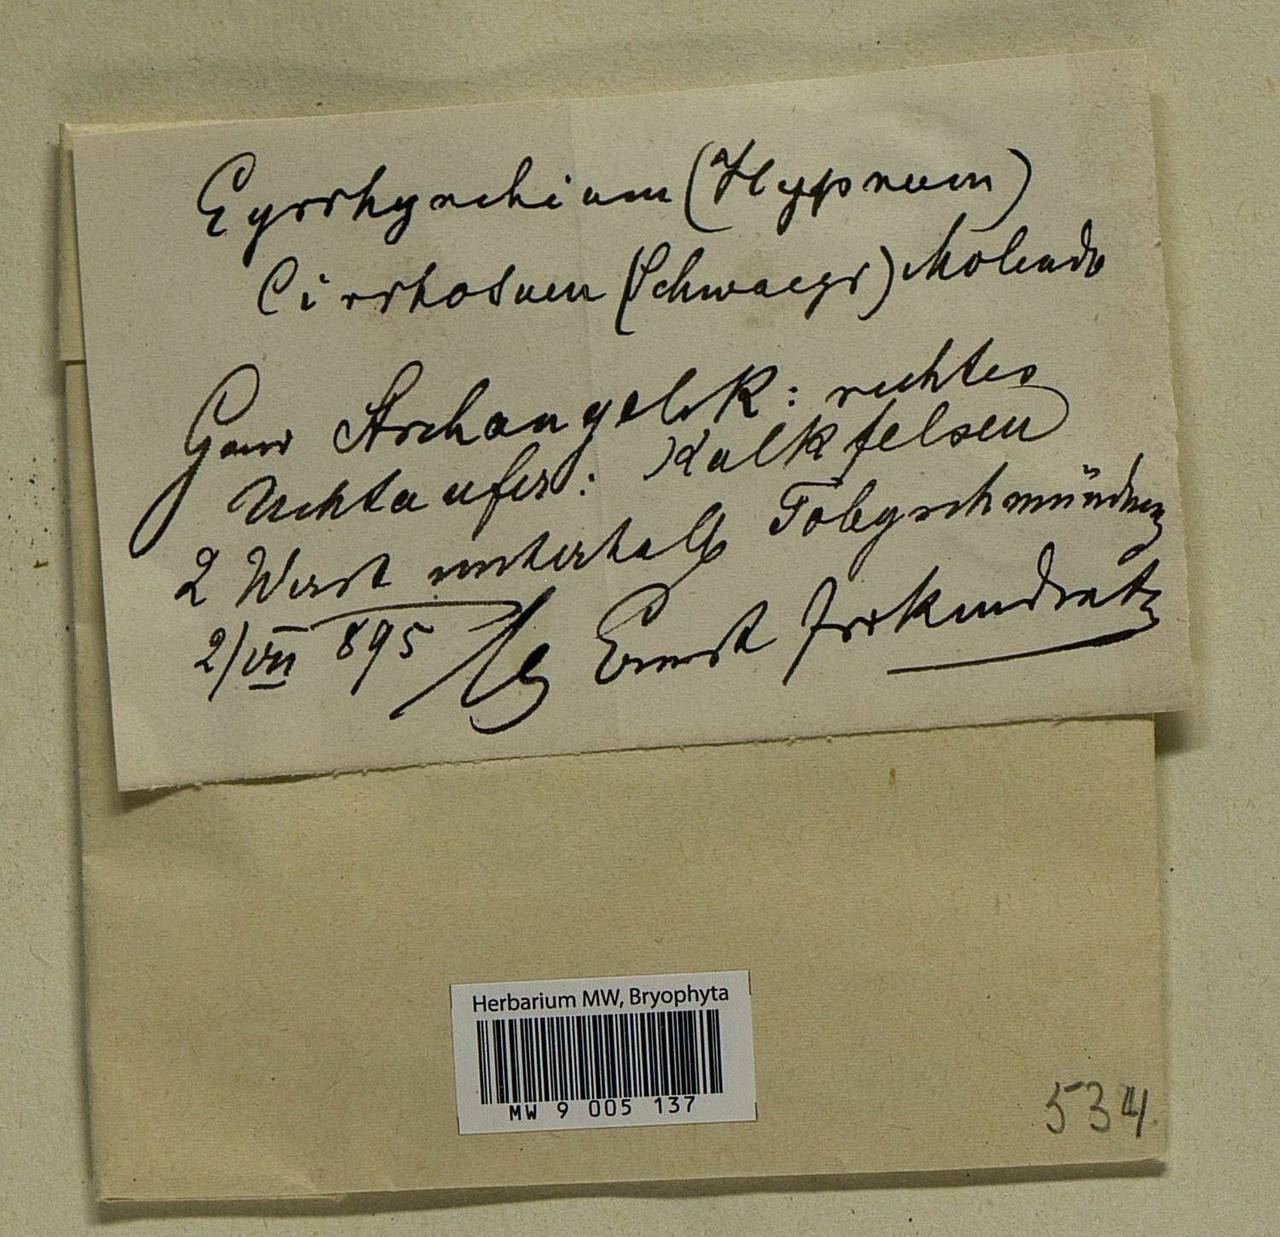 Eyrrhynchium (Hypnum)
Cirrhosum (Schwaegr) Molendo
Gouv Archangelsk: rechtes
Uchtaufer: Kalkfelsen
2 Werst unterhalb
2/VII 895 leg Ernst
Herbarium MW, Bryophyta
MW 9 005 137
534